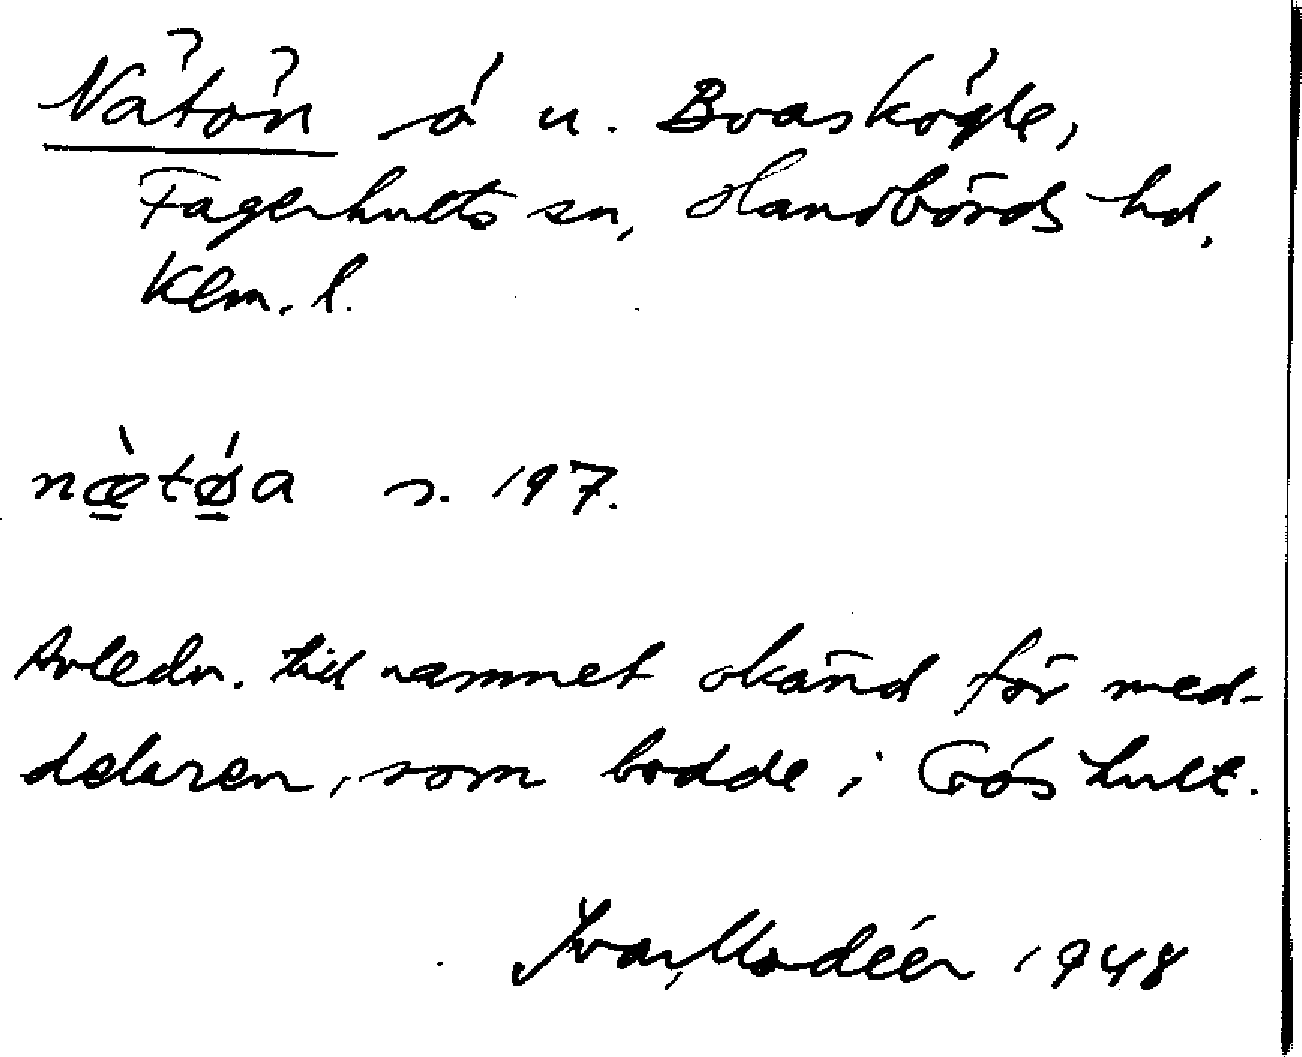 Nätön å u. Boaskögle,
Fagerhults sn, Handbörds hd,
Klm. l.
nætøa s. 197.
Avledn. till namnet okänd för med-
delaren, som bodde i Gåshult.
Ivar Modéer 1948